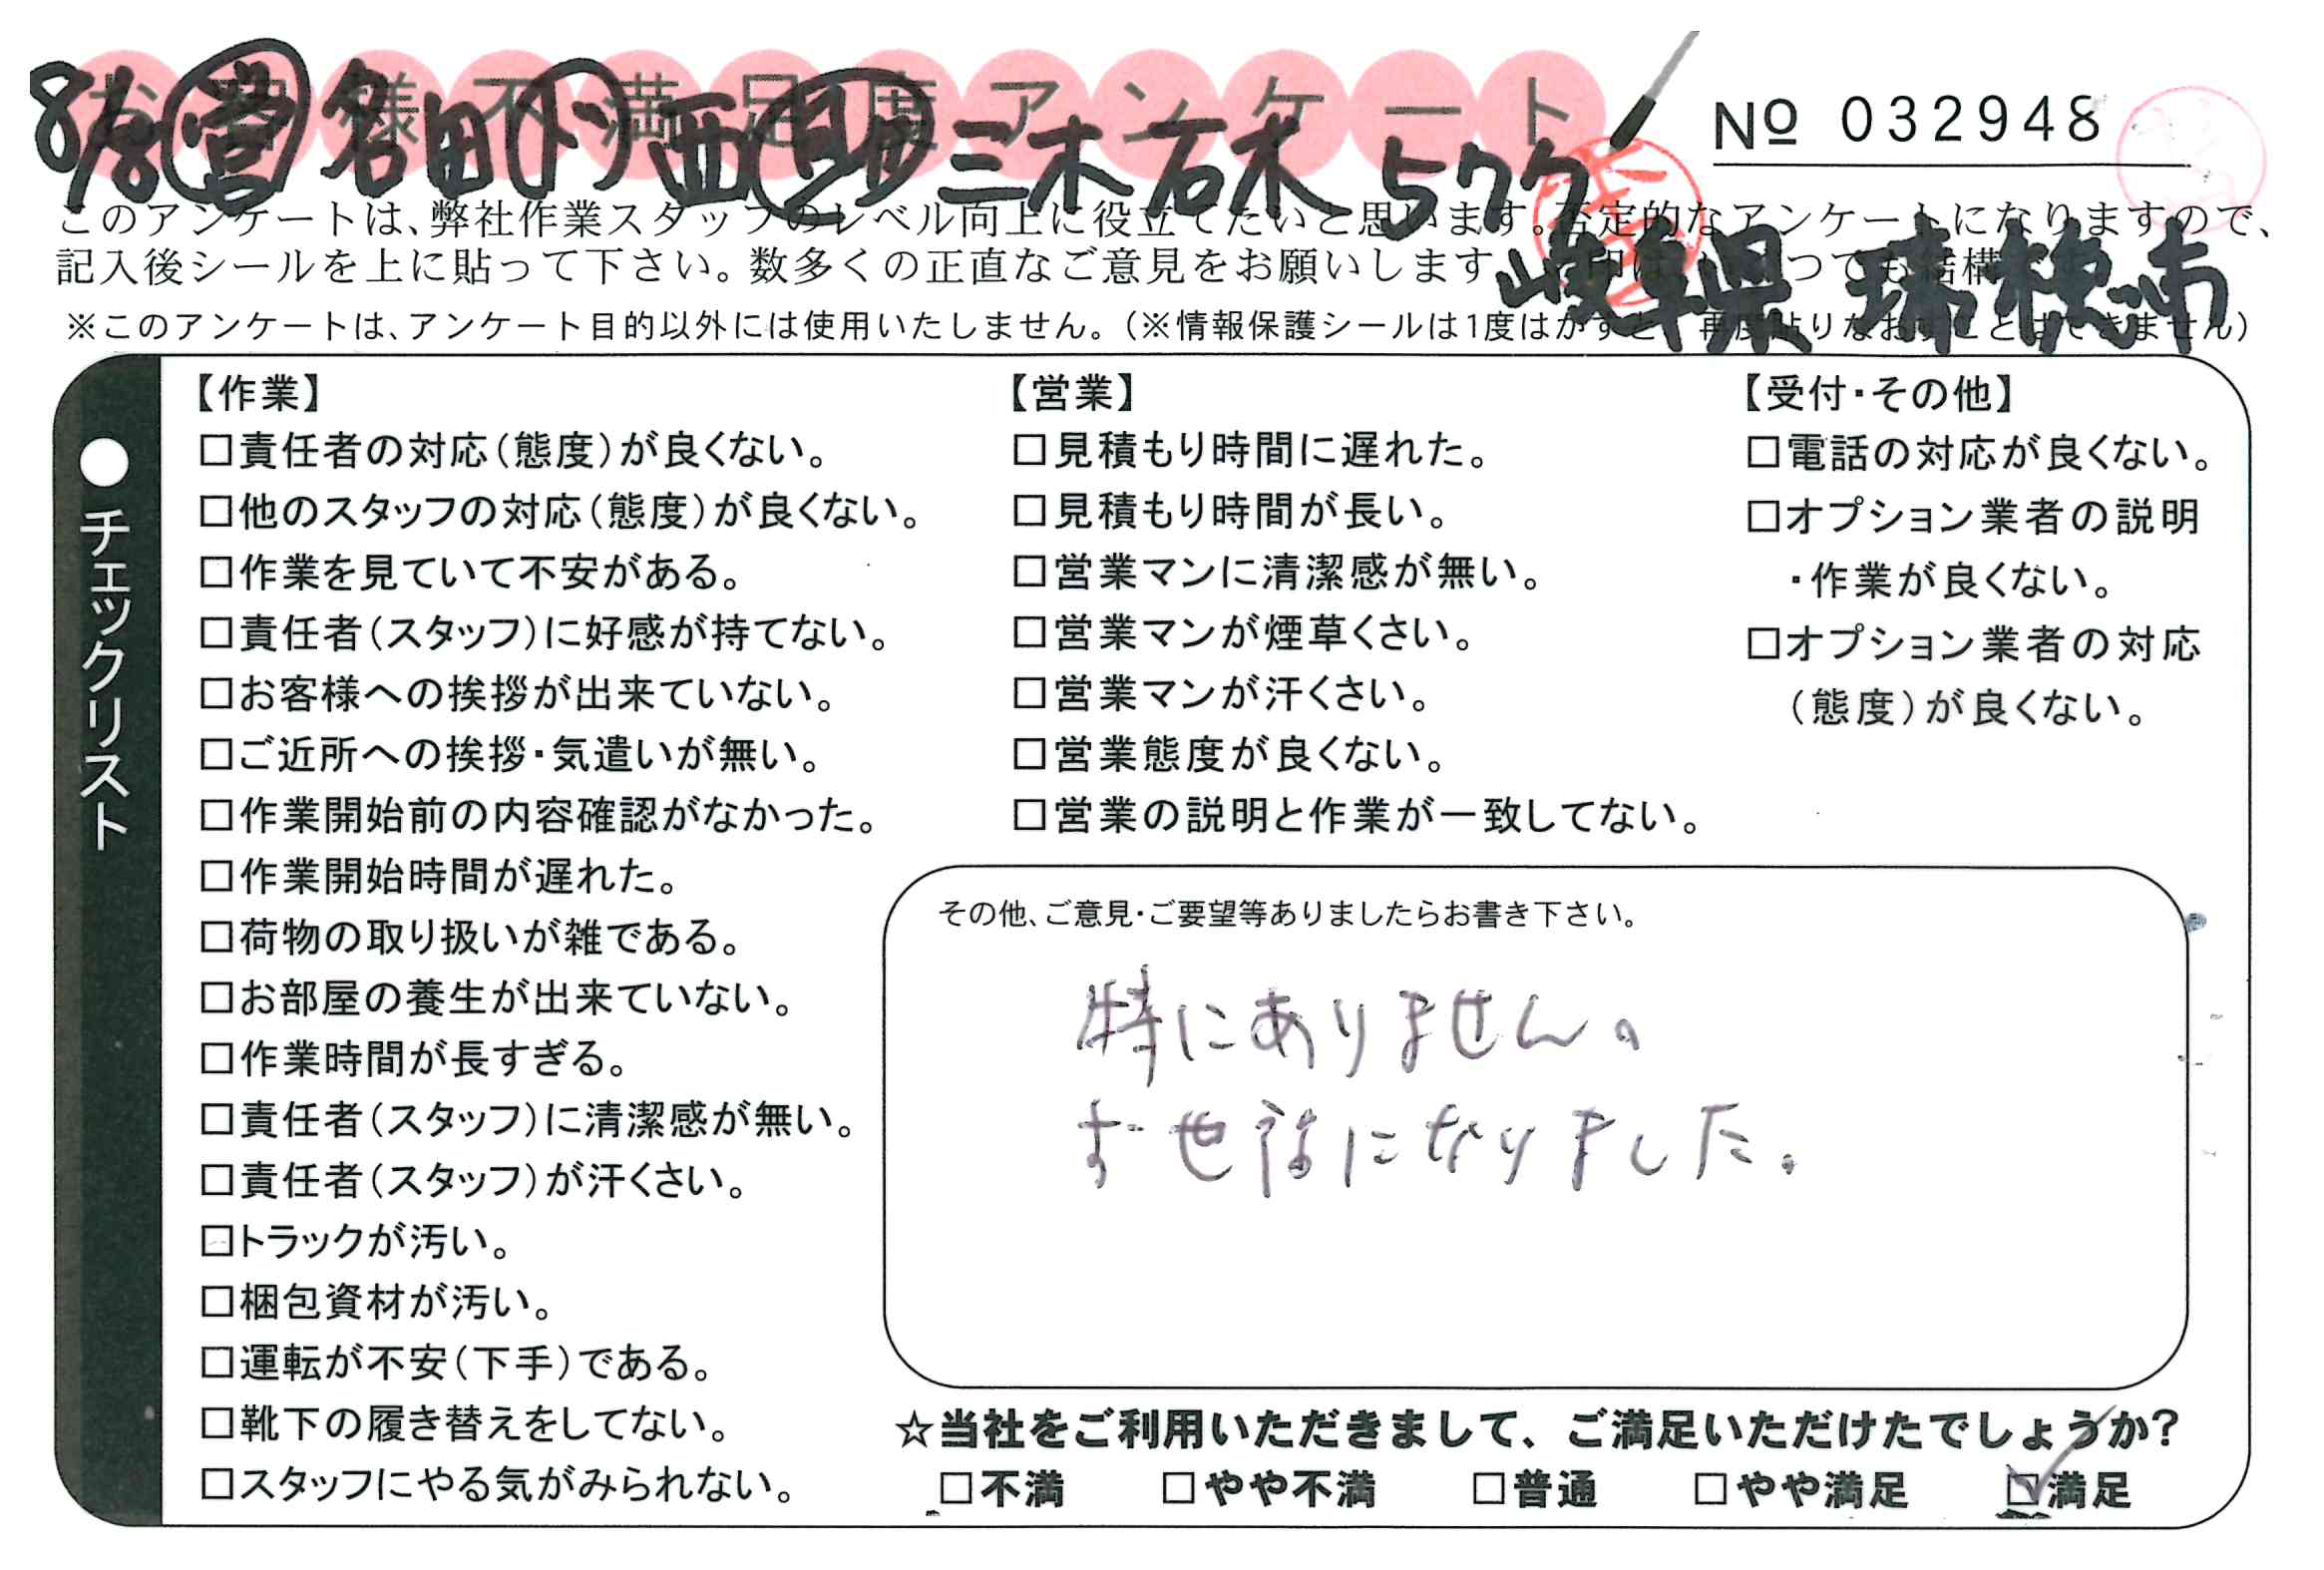 お客様不満足度アンケート
№ 032948
8/8 営 名田 ト 西 助 三木 石木 577
岐阜県 瑞穂市
このアンケートは、弊社作業スタッフのレベル向上に役立てたいと思います。否定的なアンケートになりますので、
記入後シールを上に貼って下さい。数多くの正直なご意見をお願いします
※このアンケートは、アンケート目的以外には使用いたしません。（※情報保護シールは1度はがすと、再度貼りなおすことはできません）
●チェックリスト
【作業】
□責任者の対応（態度）が良くない。
□他のスタッフの対応（態度）が良くない。
□作業を見ていて不安がある。
□責任者（スタッフ）に好感が持てない。
□お客様への挨拶が出来ていない。
□ご近所への挨拶・気遣いが無い。
□作業開始前の内容確認がなかった。
□作業開始時間が遅れた。
□荷物の取り扱いが雑である。
□お部屋の養生が出来ていない。
□作業時間が長すぎる。
□責任者（スタッフ）に清潔感が無い。
□責任者（スタッフ）が汗くさい。
□トラックが汚い。
□梱包資材が汚い。
□運転が不安（下手）である。
□靴下の履き替えをしてない。
□スタッフにやる気がみられない。
【営業】
□見積もり時間に遅れた。
□見積もり時間が長い。
□営業マンに清潔感が無い。
□営業マンが煙草くさい。
□営業マンが汗くさい。
□営業態度が良くない。
□営業の説明と作業が一致してない。
【受付・その他】
□電話の対応が良くない。
□オプション業者の説明
・作業が良くない。
□オプション業者の対応
（態度）が良くない。
その他、ご意見・ご要望等ありましたらお書き下さい。
特にありません。
お世話になりました。
☆当社をご利用いただきまして、ご満足いただけたでしょうか?
□不満 □やや不満 □普通 □やや満足 ☑満足